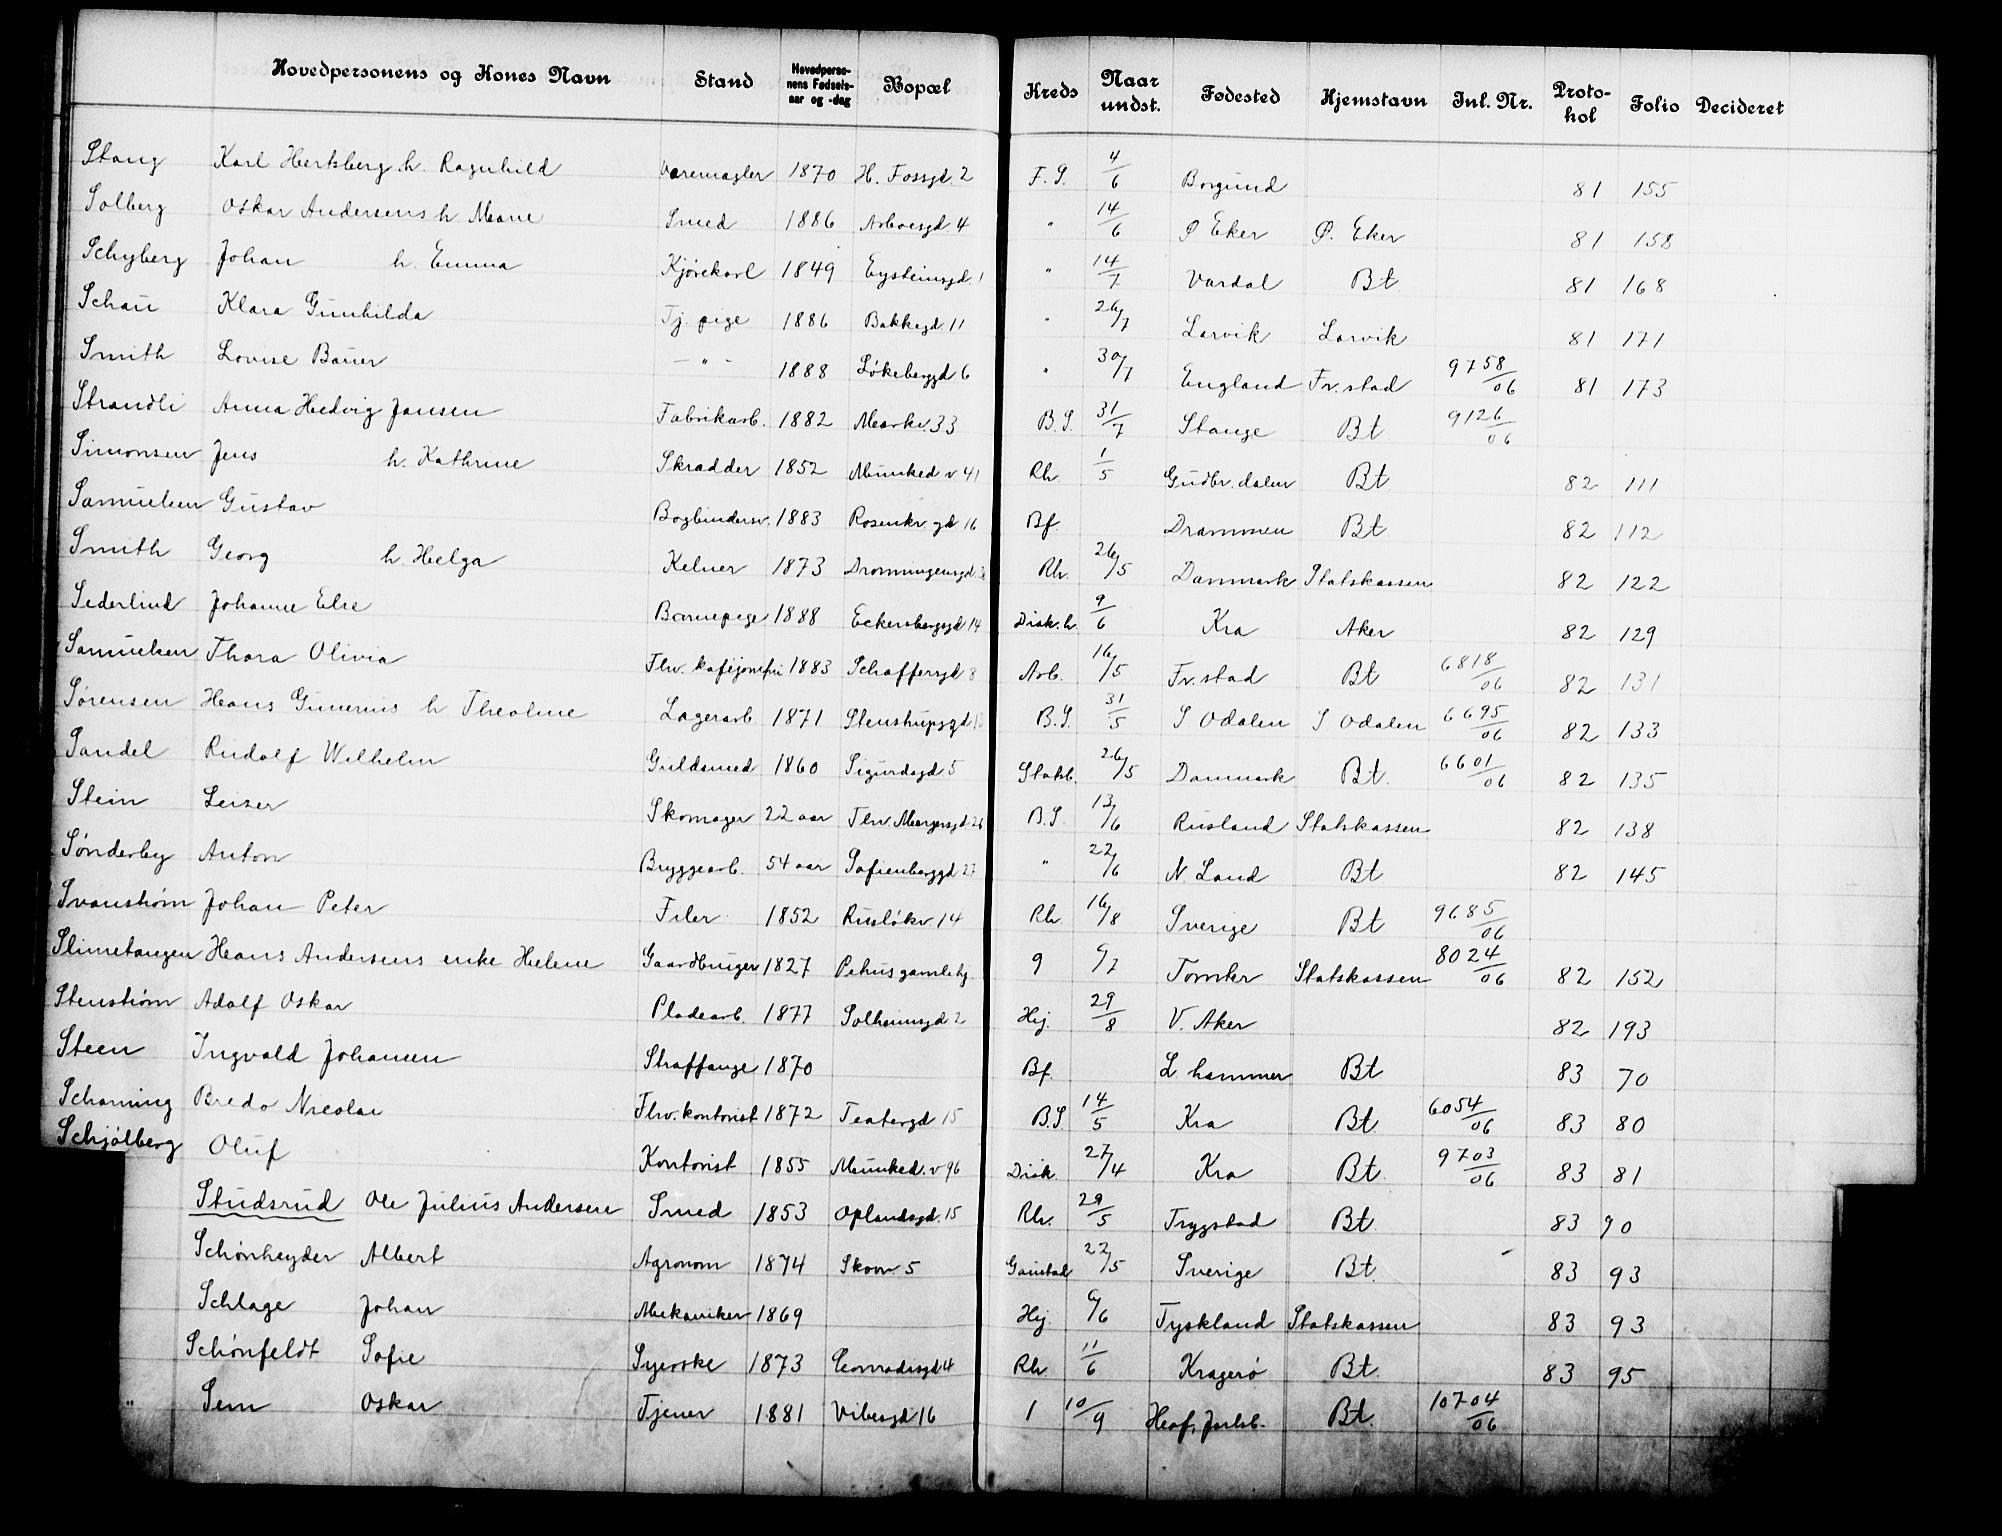 Hovedpersonens og Kones Navn Stand Hovedpersonens Fødsels-aar og -dag Bopæl Kreds Naar undst. Fødested Hjemstavn Inl. Nr. Protokol Folio Decideret
Stang Karl Hertsberg h. Ragnhild Varemægler 1870 H. Fossgd. 2 F. S. 4/6 Borgund 81 155
Solberg Oskar Andersens h Marie Smed 1886 Arboesgd. 4 " 14/6 Ø Eker Ø. Eker 81 158
Schyberg Johan h. Emma Kjørekarl 1849 Eysteinsgd. 1 " 14/7 Vardal Bt 81 168
Schau Klara Gunhilda Tj. pige 1886 Bakkegd. 11 " 26/7 Larvik Larvik 81 171
Smith Lovise Bauer — " - 1888 Løkeberggd 6 " 30/7 England Fr. stad 9758/06 81 173
Strandli Anna Hedvig Jansen Fabrikarb. 1882 Markv. 33 B. S. 31/7 Stange Bt 9126/06
Simonsen Jens h. Kathrine Skrædder 1852 Munked v 41 Rh. 1/5 Gudbr. dalen Bt 82 111
Samuelsen Gustav Bogbindersv. 1883 Rosenkr. gd 16 Bf. Drammen Bt 82 112
Smith Georg h. Helga Kelner 1873 Dronningensgd. Rh. 26/5 Danmark Statskassen 82 122
Sederlind Johanne Else Barnepige 1888 Eckersbergsgd 14 Diak. h. 9/6 Kra Aker 82 129
Samuelsen Thora Olivia Fhv. kaféjomfru 1883 Schaffersgd 8 Arb. 16/5 Fr. stad Bt 6818/06 82 131
Sørensen Hans Gunerius h Theoline Lagerarb 1871 Stenstrupsgd 13 B. S. 31/5 S Odalen S Odalen 6695/06 82 133
Sandel Rudolf Wilhelm Guldsmed 1860 Sigurdsgd 5 Statsb. 26/5 Danmark Bt. 6601/06 82 135
Stein Leiser Skomager 22 aar Thv Meyersgd 26 B. S. 13/6 Rusland Statskassen 82 138
Sønderby Anton Bryggearb. 54 aar Sofienberggd 27 " 22/6 N. Land Bt 82 145
Svanstrøm Johan Peter Filer 1852 Ruseløkv. 14 Rh 16/8 Sverige Bt 9685/06
Slimetangen Hans Andersens enke Helene Gaardbruger 1827 Pehus gamlehj. 9 6/7 Tomter Statskassen 8024/06 82 152
Stenstrøm Adolf Oskar Pladearb. 1877 Solheimsgd 2 Hej. 29/8 V. Aker 82 193
Steen Ingvald Johansen Straffange 1870 Bf. L. hammer Bt 83 70
Scharning Bredo Nicolai Fhv. kontorist 1872 Teatergd 15 B. S. 14/5 Kra Bt 6054/06 83 80
Schjølberg Oluf Kontorist 1855 Munked. v 96 Diak. 27/4 Kra Bt 9703/06 83 81
Studsrud Ole Julius Andersen Smed 1853 Oplandsgd. 15 Rh. 29/5 Trygstad Bt 83 90
Schønheyder Albert Agronom 1874 Skovv. 5 Gaustad 22/5 Sverige Bt. 83 93
Schlage Johan Mekaniker 1869 Hej. 6/6 Tyskland Statskassen 83 93
Schønfeldt Sofie Syerske 1873 Conradisgd 4 Rh 11/6 Kragerø Bt. 83 95
" Sem Oskar Tjener 1881 Vibesgd 16 1 10/9 Hof, Jarlsb. Bt. 10704/06